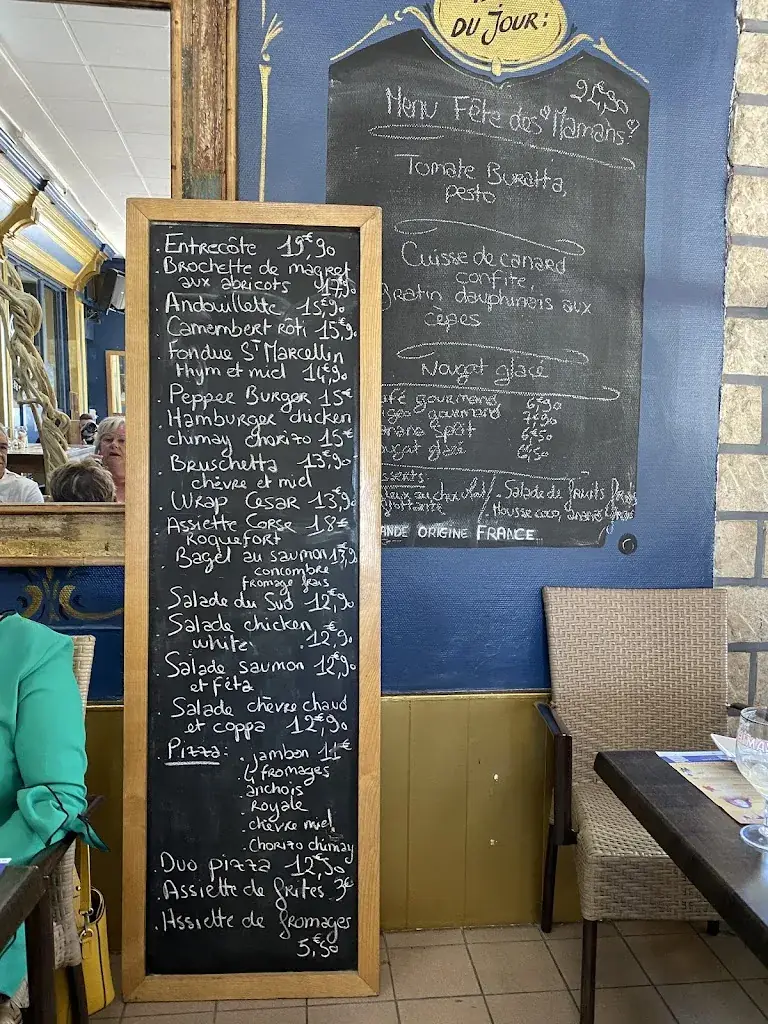 DU JOUR:
24,90
Menu Fête des Mamans!
Tomate Buratta,
pesto
Cuisse de canard
confite,
gratin dauphinois aux
cèpes
Nougat glacé
café gourmand 6€90
gourmand 7€90
banana Split 6€50
nougat glacé 6,50
Salade de fruits frais
Mousse coco, ananas
ANDE ORIGINE FRANCE
. Entrecôte 19€,90
. Brochette de magret
aux abricots 17€90
. Andouillette 15€,90
. Camembert rôti 15€,90
. Fondue St Marcellin
thym et miel 14€,90
. Pepper Burger 15€
. Hamburger chicken
chimay chorizo 15€
. Bruschetta 13€,90
chèvre et miel
. Wrap Cesar 13€,90
. Assiette Corse 18€
Roquefort
. Bagel au saumon 13€,90
concombre
fromage frais
. Salade du Sud 12€,90
. Salade chicken
white 12€,90
. Salade saumon 12€,90
et féta
. Salade chèvre chaud
et coppa 12€,90
. Pizza : . jambon 11€
. 4 fromages
. anchois
. Royale
. chèvre miel
. chorizo chimay
. Duo pizza 12€,50
. Assiette de frites 3€
. Assiette de fromages
5€,50